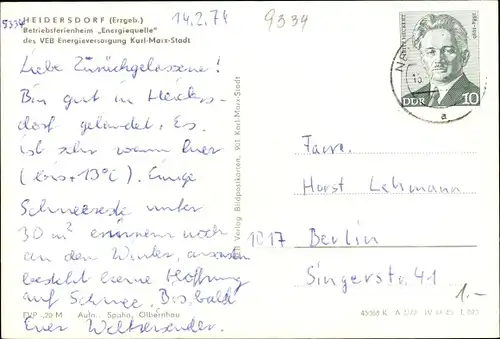 HEIDERSDORF (Erzgeb.)
Betriebsferienheim „Energiequelle"
des VEB Energieversorgung Karl-Marx-Stadt
5334
14.2.74
9334
Liebe Zurückgelassene!
Bin gut in Heiders-
dorf gelandet. Es
ist sehr warm hier
(bis +13°C). Einige
Schneereste unter
30 m² erinnern noch
an den Winter, ansonsten
besteht keine Hoffnung
auf Schnee. Bis bald
Euer Weltreisender.
EVP -,20 M Aufn.: Spahn, Olbernhau
Verlag Bildpostkarten, 901 Karl-Marx-Stadt
DDR 10
a
Famr.
Horst Lehmann
1017 Berlin
Singerstr. 41
1.-